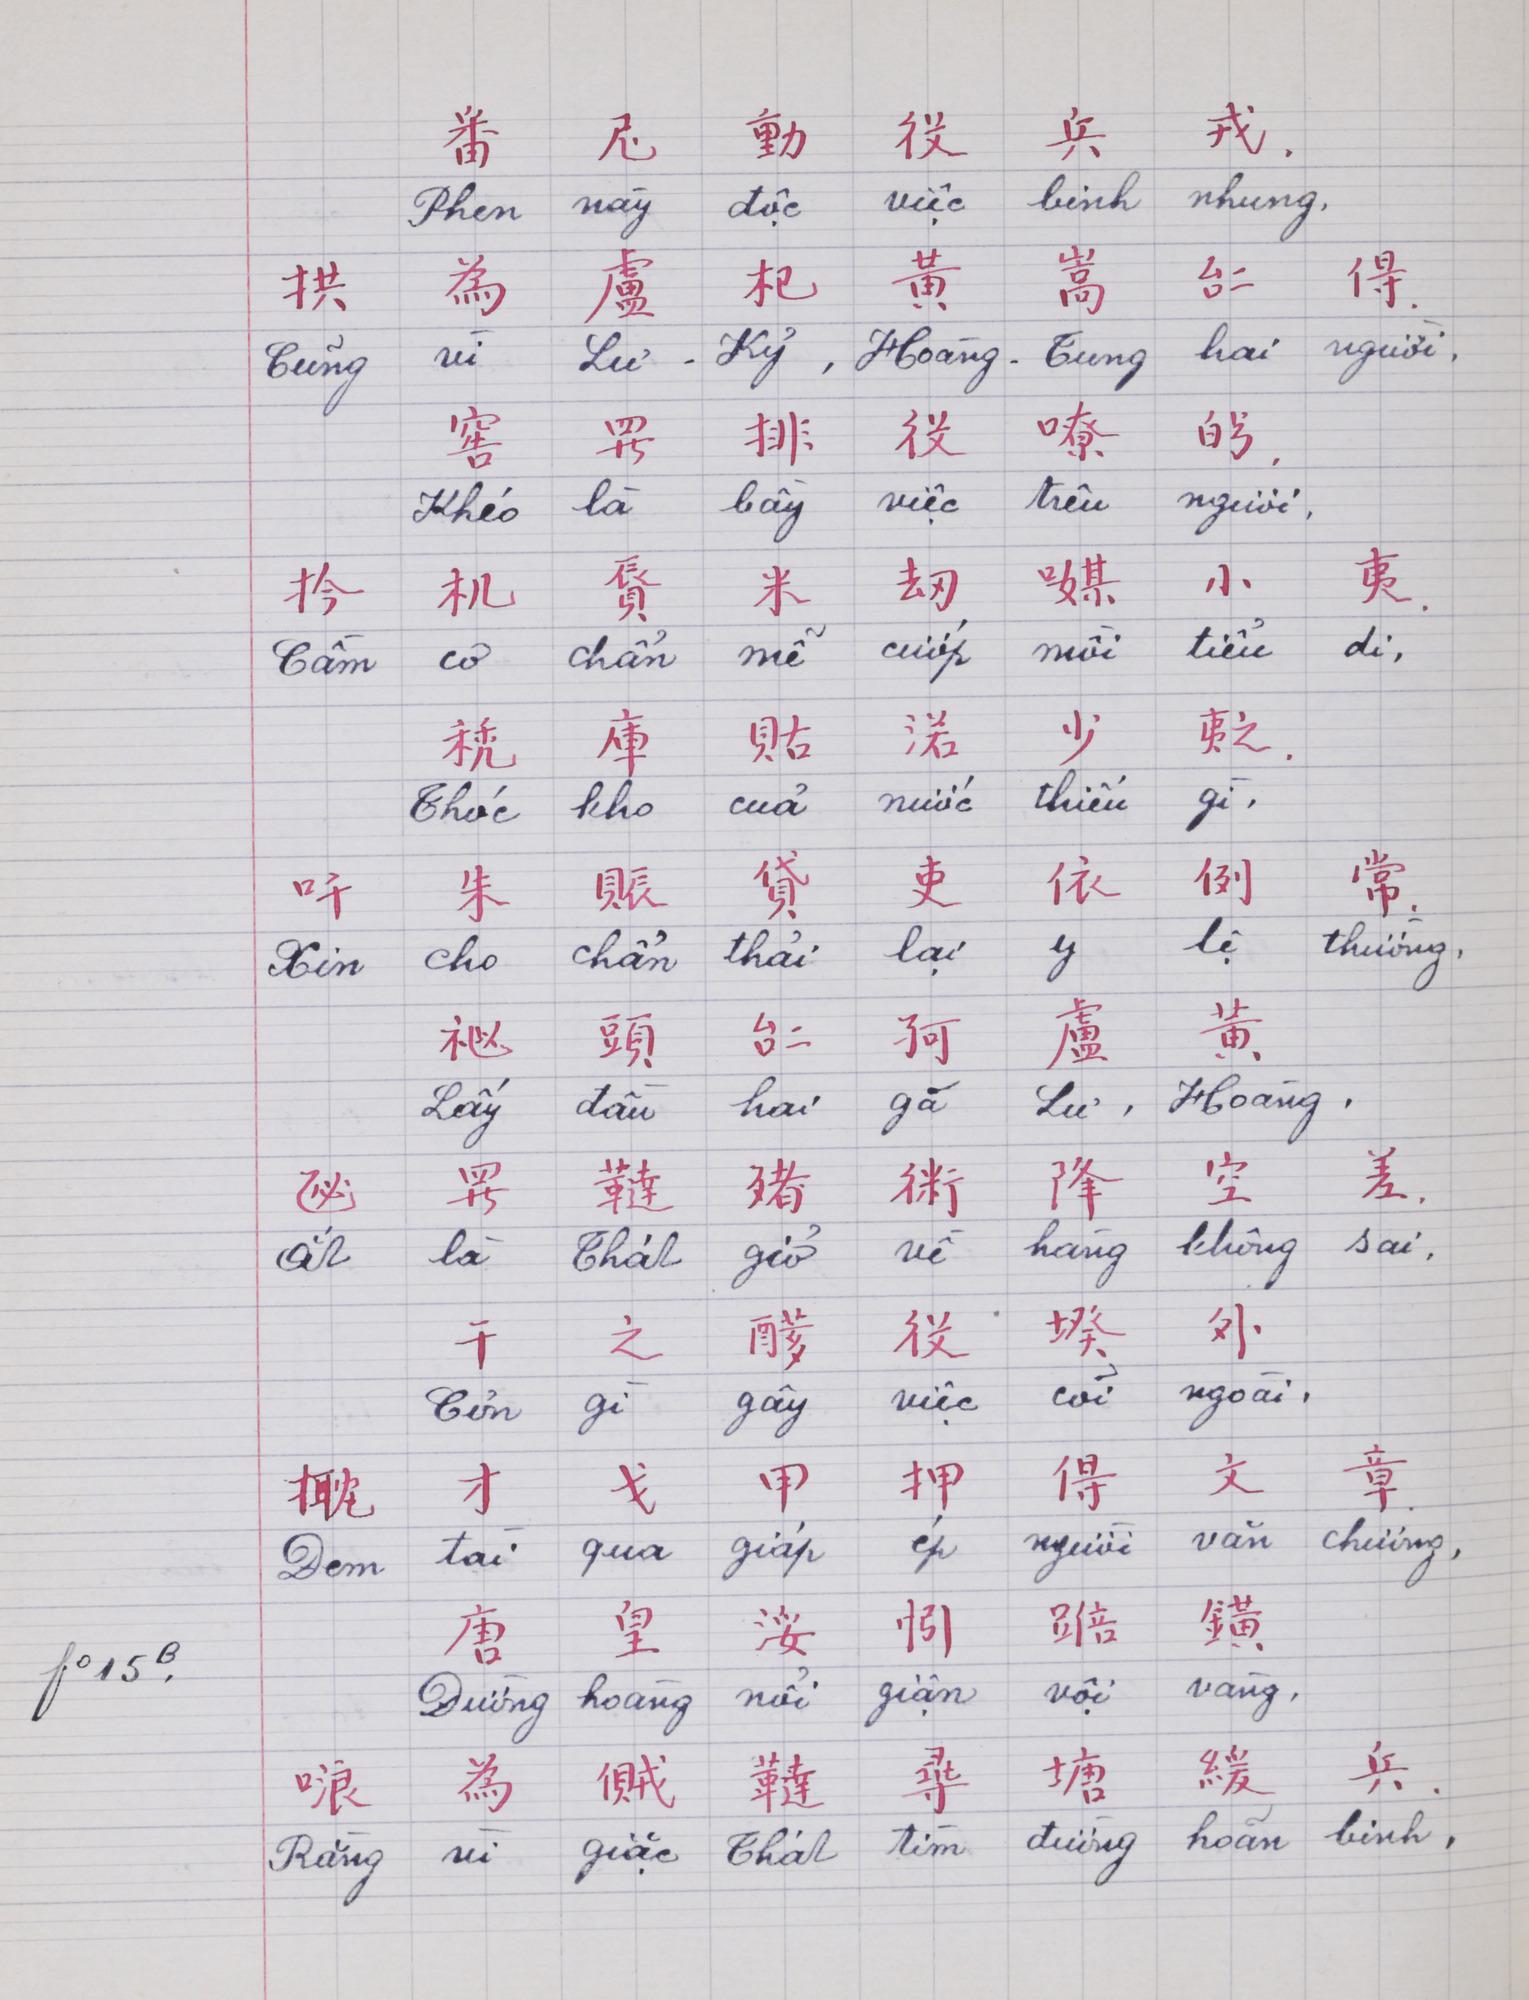 番 尼 動 役 兵 戎.
Phen này độc việc binh nhung,
拱 為 盧 杞 黃 嵩 𠄩 得.
Cũng vì Lư - Kỷ, Hoàng - Tung hai người,
窖 𱺵 排 役 嘹 𤽗.
Khéo là bầy việc trêu ngươi,
扲 机 賑 米 刼 𠼦 小 夷.
Cầm cơ chẩn mễ cướp mồi tiểu di,
𥞖 庫 貼 渃 少 夷之.
Thóc kho cuả nước thiếu gì,
吀 朱 賑 貸 吏 依 例 常.
Xin cho chẩn thải lại y lệ thường,
𥙩 頭 𠄩 哿 盧 黃
Lấy đầu hai gã Lư, Hoàng,
𠮿 𱺵 韃 𣇞 術 降 空 差.
Ắt là Thát giở về hàng không sai,
干 之 𨢟 役 堺 外
Cơn gì gây việc cõi ngoài,
𢬗 才 戈 甲 押 得 文 章.
Đem tài qua giáp ép người văn chương,
唐 皇 浽 恨 踣 鐄
fº 15 B. Đường hoàng nổi giận vội vàng,
哴 為 賊 韃 尋 塘 緩 兵.
Rằng vì giặc Thát tìm đường hoãn binh,